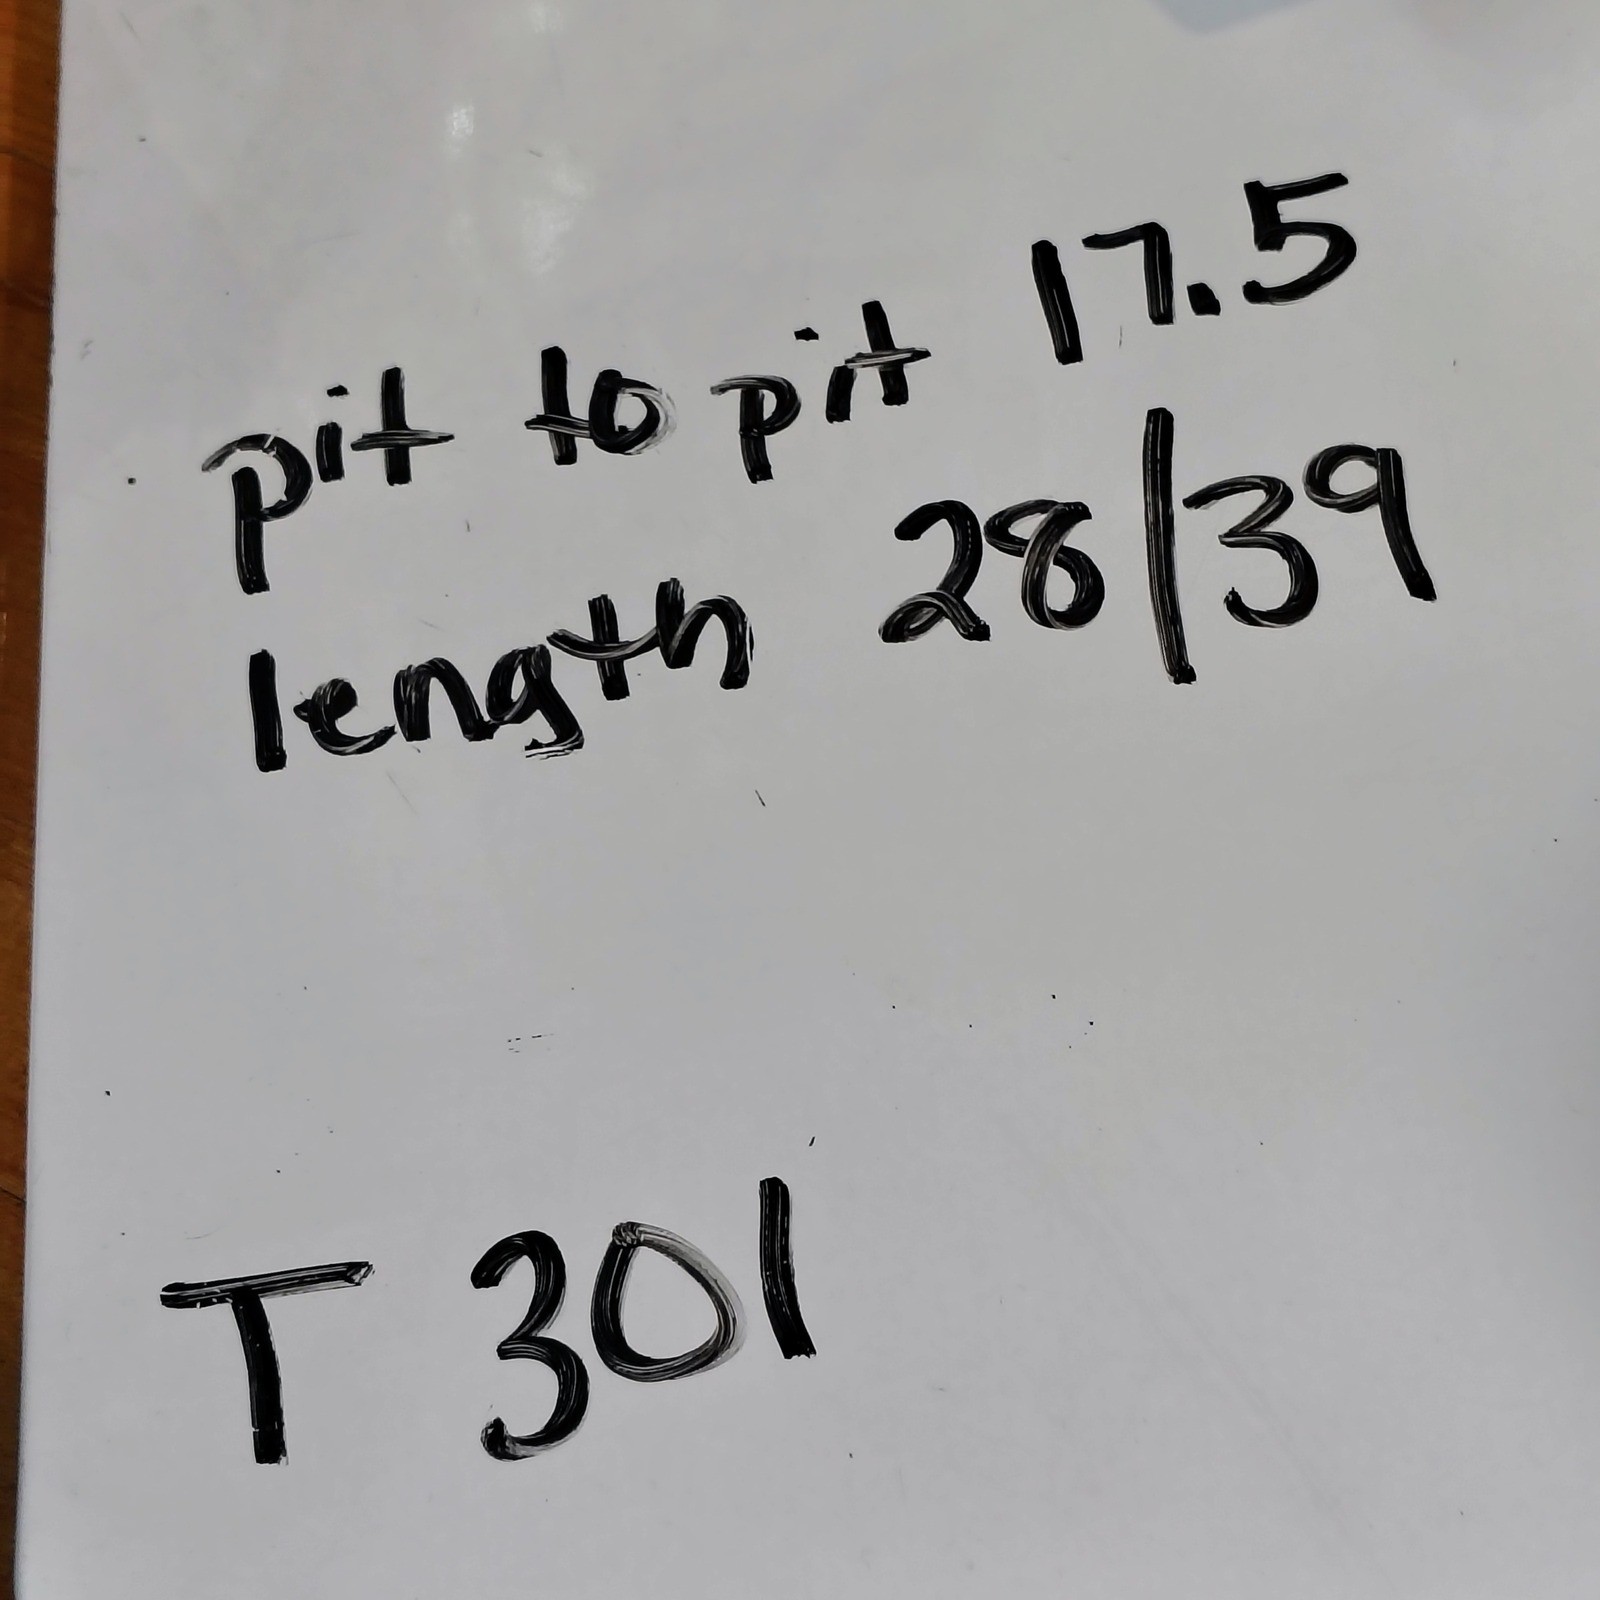 pit to pit 17.5
length 28/39
T 301